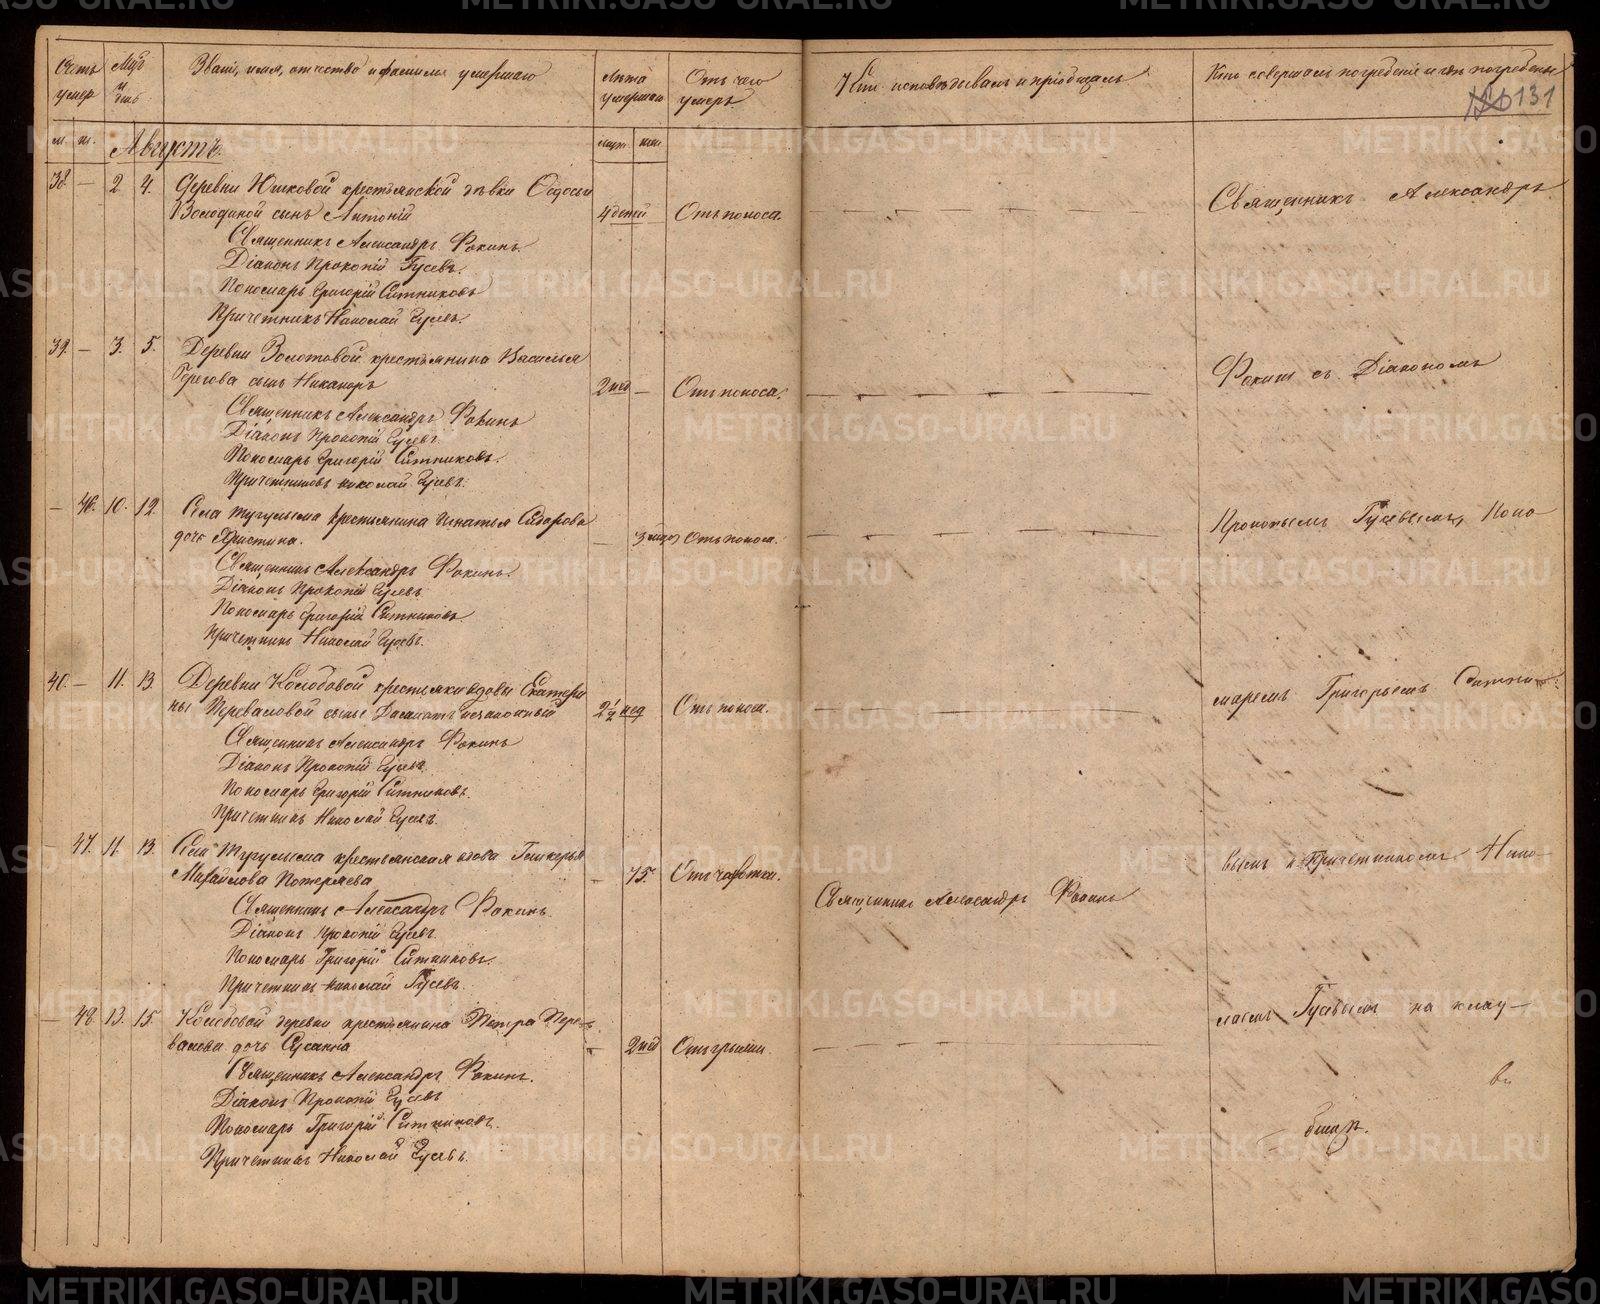 Счетъ умер.
Мцъ и день
Званіе, имя, отчество и фамилия умершаго
Лѣта умершаго
Отъ чего умеръ.
Кто исповѣдывалъ и пріобщалъ
Кто совершалъ погребеніе и гдѣ погребены
131
м. ж. Августъ. муж. жен.
38 — 2 4. Деревни Юшковой крестьянской дѣвки Ѳедосьи
Володиной сынъ Антоній 4 дней Отъ поноса. Священникъ Александръ
Священникъ Александръ Фокинъ.
Діаконъ Прокопій Гусевъ.
Пономарь Григорій Ситниковъ
Причетникъ Николай Гусевъ.
39. — 3. 5. Деревни Золотовой крестьянина Василья
сынъ Никаноръ 2 нед — Отъ поноса. Фокинъ съ Діакономъ
Священникъ Александръ Фокинъ
Діаконъ Прокопій Гусевъ
Пономарь Григорій Ситниковъ.
Причетникъ Николай Гусевъ.
— 46. 10. 12. Села Тугулыма крестьянина Игнатья Сидорова
дочь Христина. — 3 Отъ поноса. Прокопьемъ Гусевымъ, Поно-
Священникъ Александръ Фокинъ.
Діаконъ Прокопій Гусевъ.
Пономарь Григорій Ситниковъ
Причетникъ Николай Гусевъ.
40. — 11. 13. Деревни Колобовой крестьянки вдовы Екатери
ны Переваловой сынъ незаконный 2 1/2 нед Отъ поноса. маремъ Григорьемъ Ситни-
Священникъ Александръ Фокинъ
Діаконъ Прокопій Гусевъ.
Пономарь Григорій Ситниковъ.
Причетникъ Николай Гусевъ.
— 47. 11. 13. Села Тугулыма крестьянская вдова Гликерья
Михайлова Потеряева — 75. Отъ чахотки. Священникъ Александръ Фокинъ ковымъ и Причетникомъ Нико-
Священникъ Александръ Фокинъ.
Діаконъ Прокопій Гусевъ.
Пономарь Григорій Ситниковъ.
Причетникъ Николай Гусевъ.
— 48. 13. 15. Колобовой деревни крестьянина Петра Пере-
валова дочь Сусанна — 2 нед Отъ грыжи. лаемъ Гусевымъ на клад-
Священникъ Александръ Фокинъ.
Діаконъ Прокопій Гусевъ
Пономарь Григорій Ситниковъ.
Причетникъ Николай Гусевъ.
METRIKI.GASO-URAL.RU